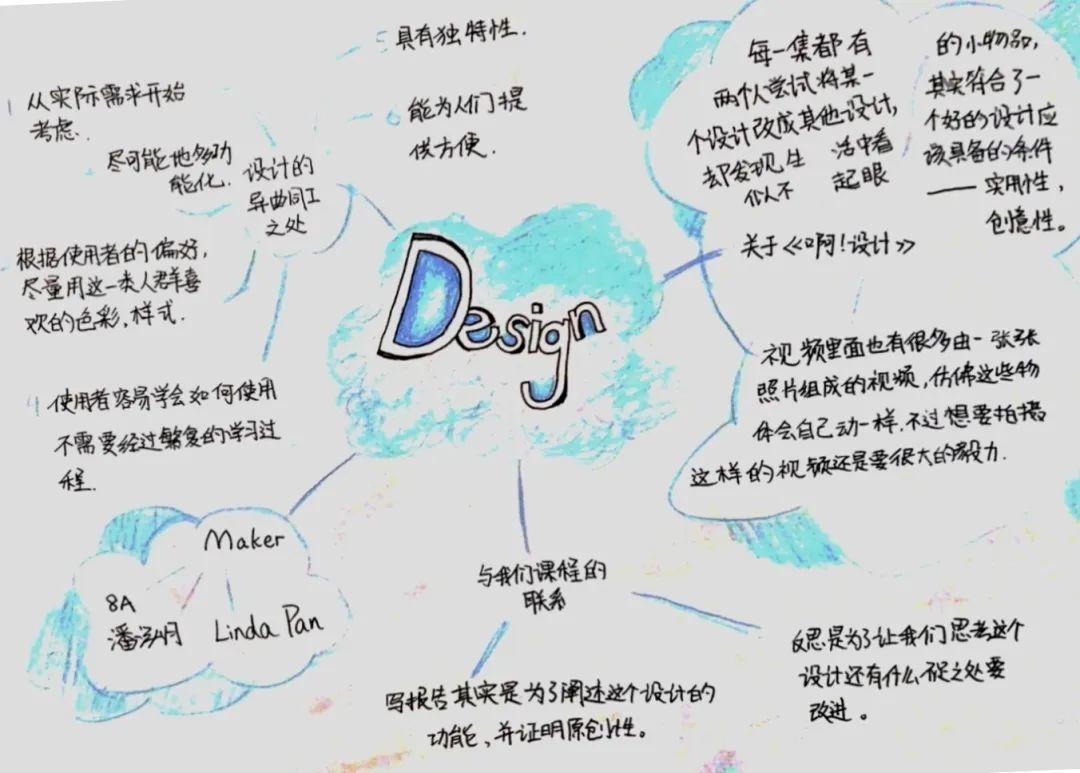 Design
设计的
异曲同工
之处
1 从实际需求开始
考虑.
尽可能地多功
能化.
根据使用者的偏好,
尽量用这一类人群喜
欢的色彩,样式.
4 使用者容易学会如何使用
不需要经过繁复的学习过
程.
5 具有独特性.
6 能为人们提
供方便.
关于《啊!设计》
每一集都有
两个人尝试将某一
个设计改成其他设计,
却发现生活中看
似不起眼
的小物品,
其实符合了一
个好的设计应
该具备的条件
—— 实用性,
创意性。
视频里面也有很多由一张张
照片组成的视频,仿佛这些物
体会自己动一样,不过想要拍摄
这样的视频还是要很大的毅力.
与我们课程的
联系
写报告其实是为了阐述这个设计的
功能,并证明原创性。
反思是为了让我们思考这个
设计还有什么不足之处要
改进。
Maker
8A
潘
Linda Pan